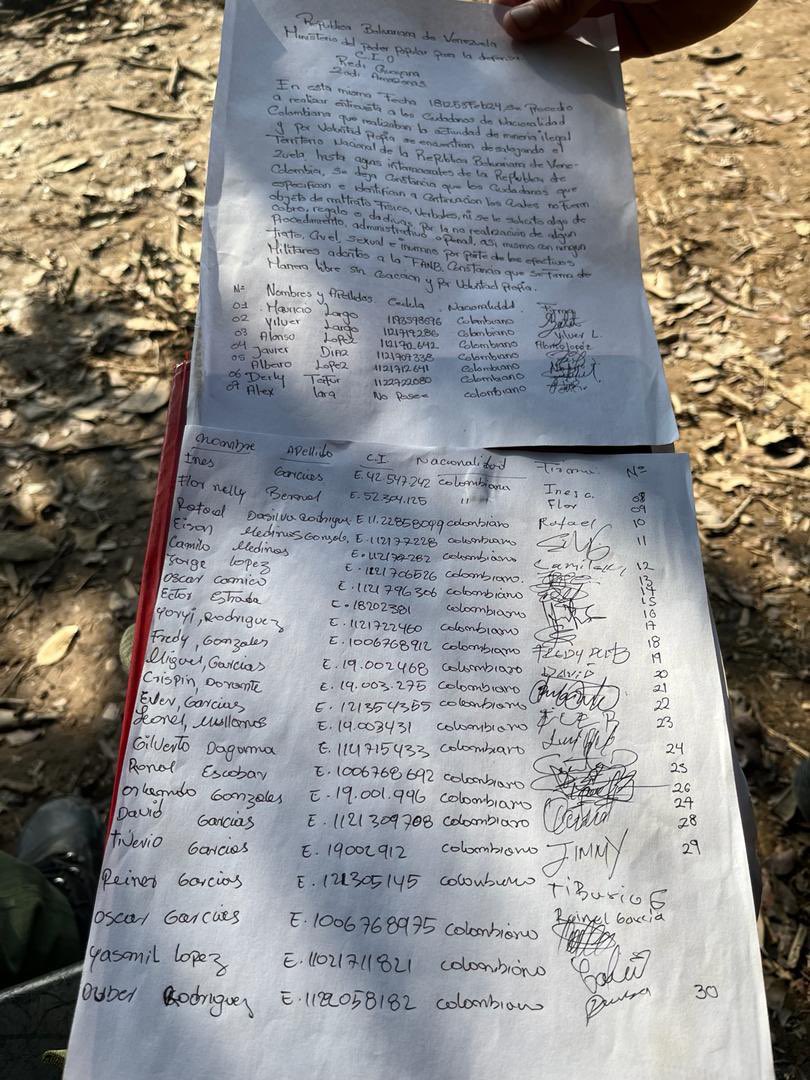 República Bolivariana de Venezuela
Ministerio del poder Popular para la defensa
C.I.O
Redi Guayana
Zodi Amazonas
En esta misma Fecha 181255Feb24 se Procedio
a realizar entrevista a los Ciudadanos de Nacionalidad
Colombiana que realizaban la actividad de mineria ilegal
y por Voluntad Propia se encuentran desalojando el
Territorio Nacional de la República Bolivariana de Vene-
zuela hasta aguas internacionales de la República de
Colombia, se deja Constancia que los Ciudadanos que
especifican e identifican a Continuacion los Cuales no Fueron
objeto de maltrato Fisico, Verbales, ni se le solicito algo de
Cobro, regalo o dadivas, por la no realización de algun
Procedimiento, administrativo o Penal, asi mismo con ningun
trato, Cruel, Sexual e inumano por parte de los efectivos
Militares adcritos a la FANB, Constancia que se Firma de
Manera libre sin Coaccion y Por Voluntad Propia.
Nº Nombres y Apellidos. Cedula. Nacionalidad.
01 Mauricio Largo 1193598696 Colombiano
02 Yilver Largo 1121717286 Colombiano Yilver L.
03 Alonso Lopez 1121702642 Colombiano Alonso Lopez
04 Javier Diaz 1121709338 Colombiano
05 Albero Lopez 1121712641 Colombiano
06 Derly 1122722080 Colombiano
07 Alex Lara No Posee colombiano
Nombre Apellido C.I. Nacionalidad Firma: Nº
Ines Garcias E.42.547.242 colombiana Ines G. 08
Flor nelly Bernal E.52.304.125 " Flor 09
Rafael Dasilva Rodrigue E 11.22858099 colombiano Rafael 10
Eison Medinas Gonzale, E.112177228 colombiano 11
Camilo Medinas E. colombiano Camilo 12
Jorge Lopez E.1121706526 colombiano. 13
Oscar E.1121796306 colombiano 14
Ector Estrada E.18202381 colombiano 15
Yoryi, Rodriguez E.1121722460 colombiano 16
17
Fredy, Gonzales E.1006768912 colombiano 18
Miguel, Garcias E.19.002468 colombiano DAVID 19
Crispin, Dorante E.19.003.275 colombiano 20
Ever, Garcias E.121354355 colombiano 21
Leonel, E.19.003431 colombiano 22
Gilverto Dagama E.1121715433 colombiano 23
Ronal Escobar E.1006768692 colombiano 24
Orleando Gonzales E.19.001.996 colombiano 25
David Garcias E.1121309708 colombiano 26
27
28
Tiverio Garcias E.19002912 colombiano JIMMY 29
Reiner Garcias E.121305145 colombiano TiBurio G
Oscar Garcias E.1006768975 colombiano Reinel Garcia
Yasomil Lopez E.11021711821 colombiano
Duber Rodriguez E.1122058182 colombiano 30